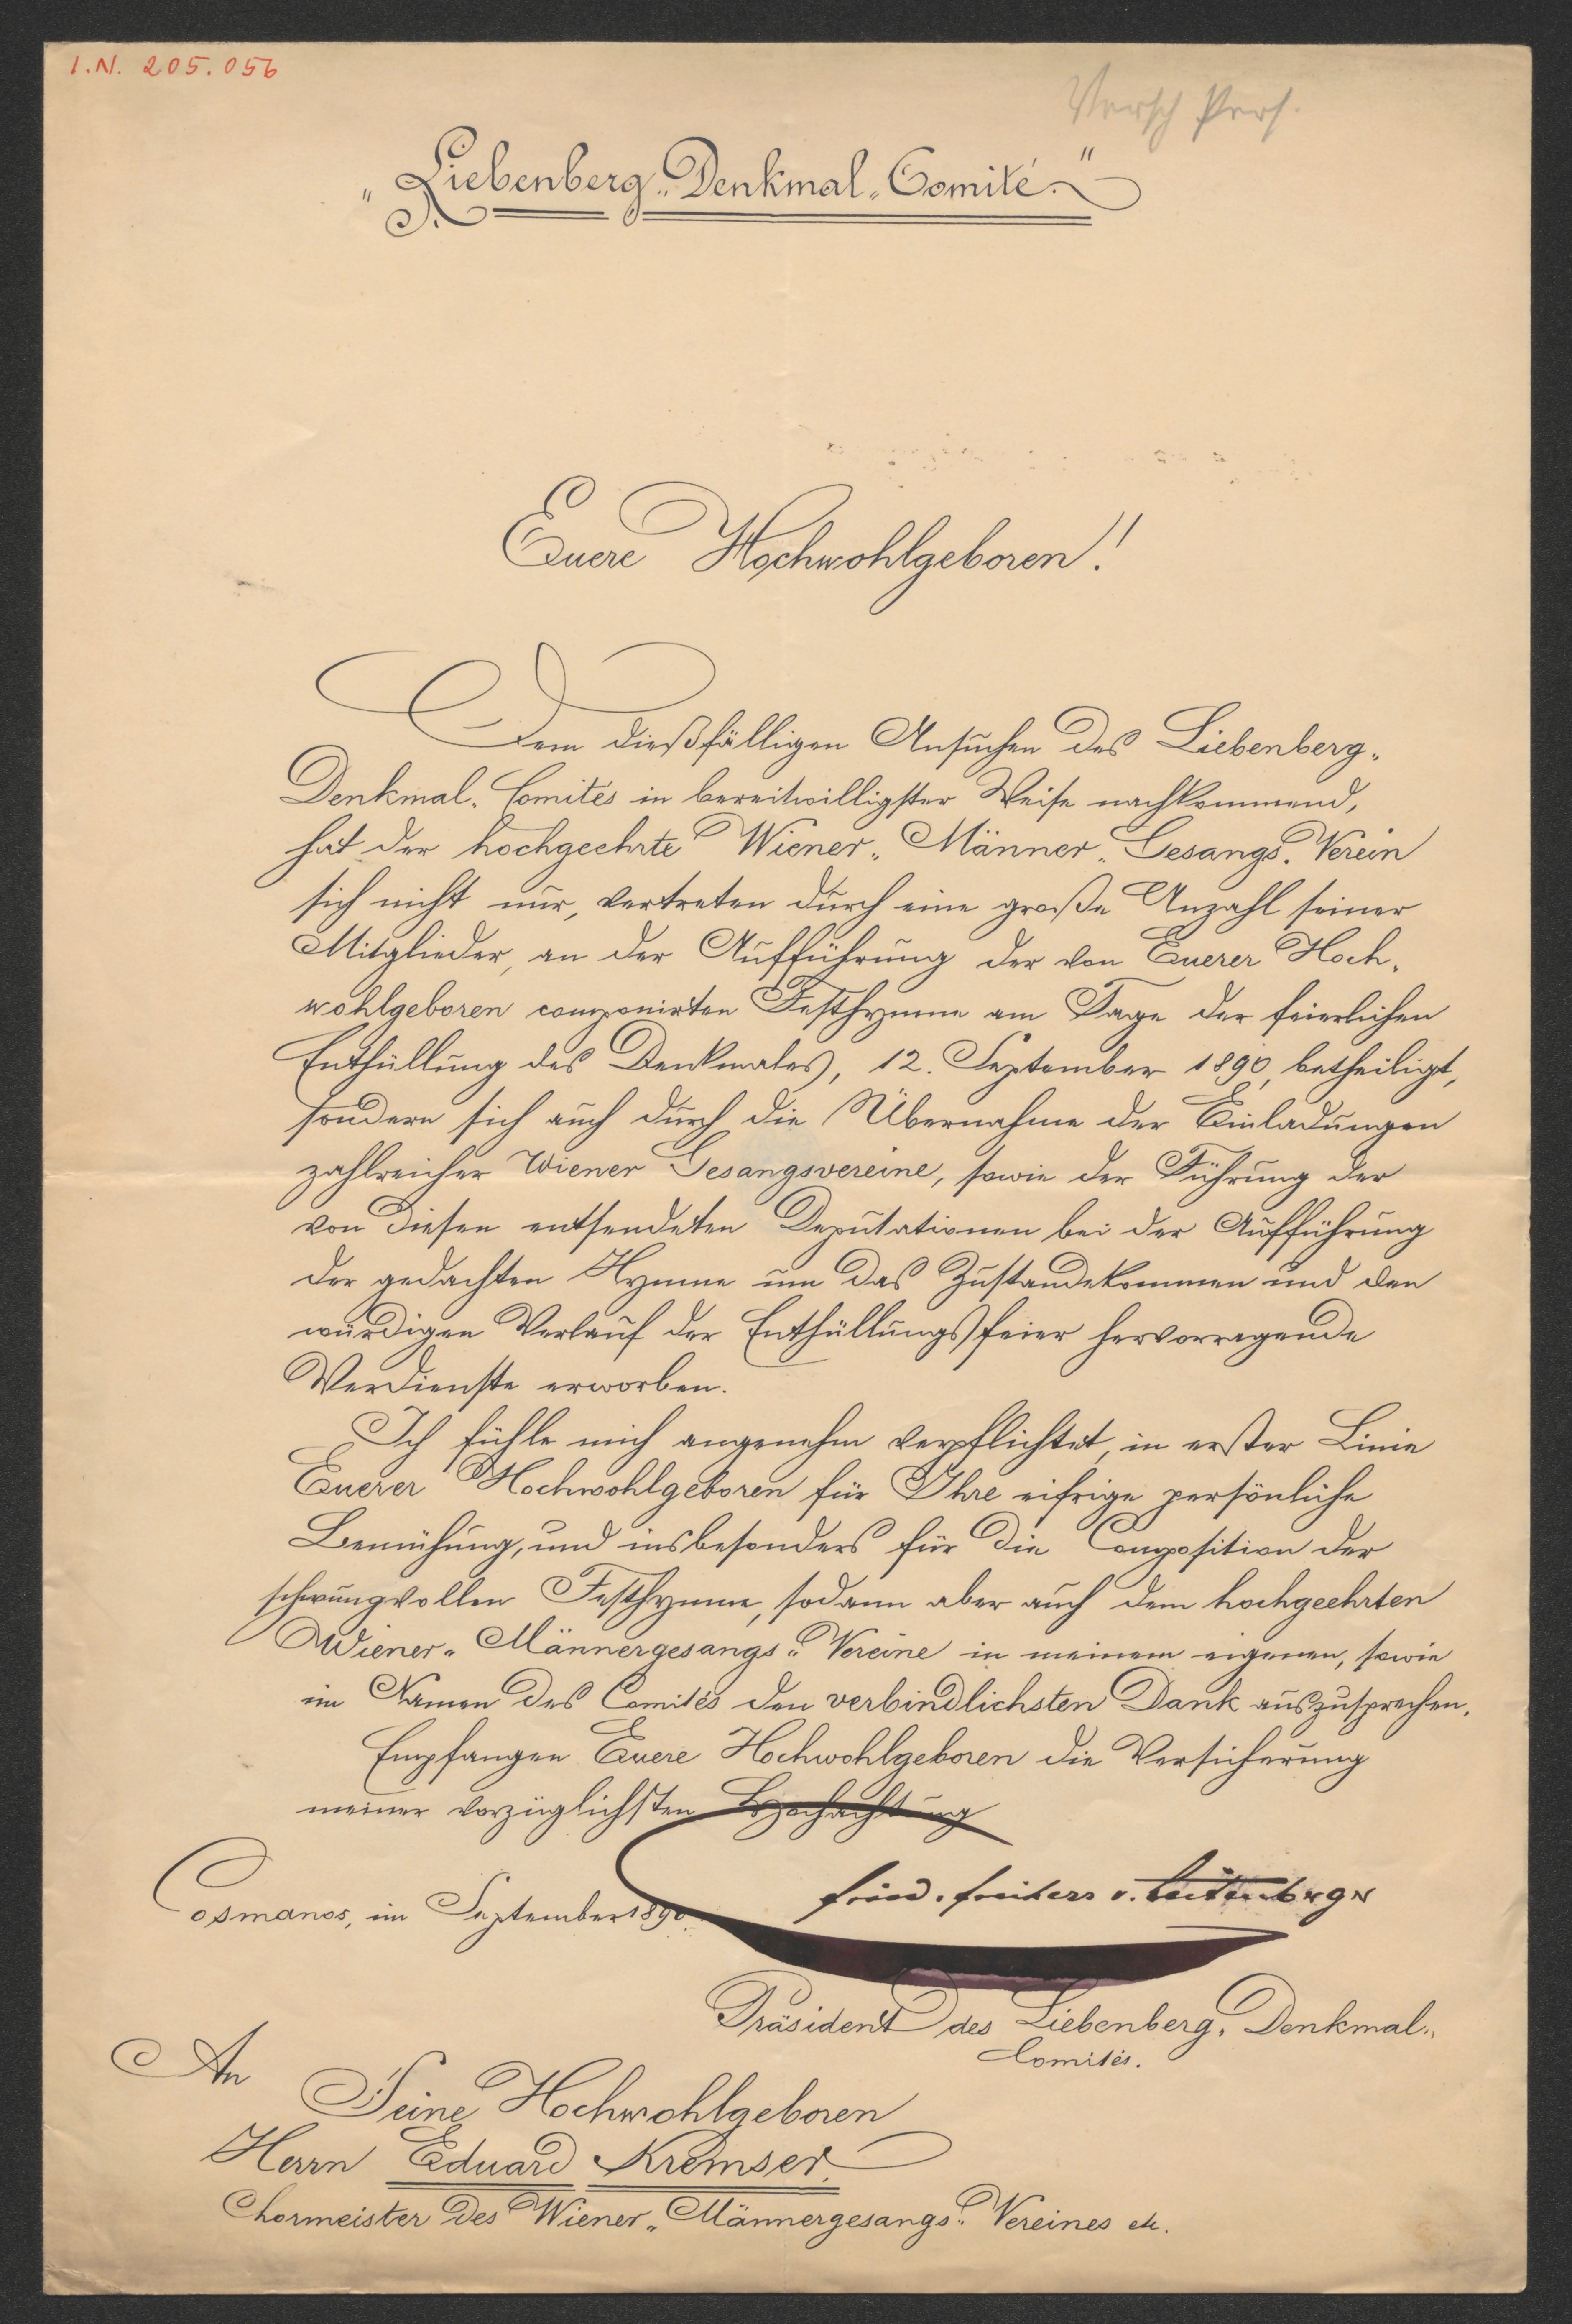 I.N. 205.056
Versch Pers.
„Liebenberg-Denkmal-Comité."
Euere Hochwohlgeboren!
Dem dießfälligen Ansuchen des Liebenberg-
Denkmal-Comités in bereitwilligster Weise nachkommend,
hat der hochgeehrte Wiener-Männer-Gesangs-Verein
sich nicht nur, vertreten durch eine große Anzahl seiner
Mitglieder, an der Aufführung der von Euerer Hoch-
wohlgeboren componirten Festhymne am Tage der feierlichen
Enthüllung des Denkmales, 12. September 1890, betheiligt,
sondern sich auch durch die Übernahme der Einladungen
zahlreicher Wiener Gesangsvereine, sowie der Führung der
von diesen entsendeten Deputationen bei der Aufführung
der gedachten Hymne um das Zustandekommen und den
würdigen Verlauf der Enthüllungsfeier hervorragende
Verdienste erworben.
Ich fühle mich angenehm verpflichtet, in erster Linie
Euerer Hochwohlgeboren für Ihre eifrige persönliche
Bemühung, und insbesonders für die Composition der
schwungvollen Festhymne, sodann aber auch dem hochgeehrten
Wiener-Männergesangs-Vereine in meinem eigenen, sowie
im Namen des Comités den verbindlichsten Dank auszusprechen.
Empfangen Euere Hochwohlgeboren die Versicherung
meiner vorzüglichsten Hochachtung
Fried. Freiherr v. Leitenberger
Cosmanos, im September 1890.
Präsident des Liebenberg-Denkmal-
Comités.
An
Seine Hochwohlgeboren
Herrn Eduard Kremser
Chormeister des Wiener-Männergesangs-Vereines etc.